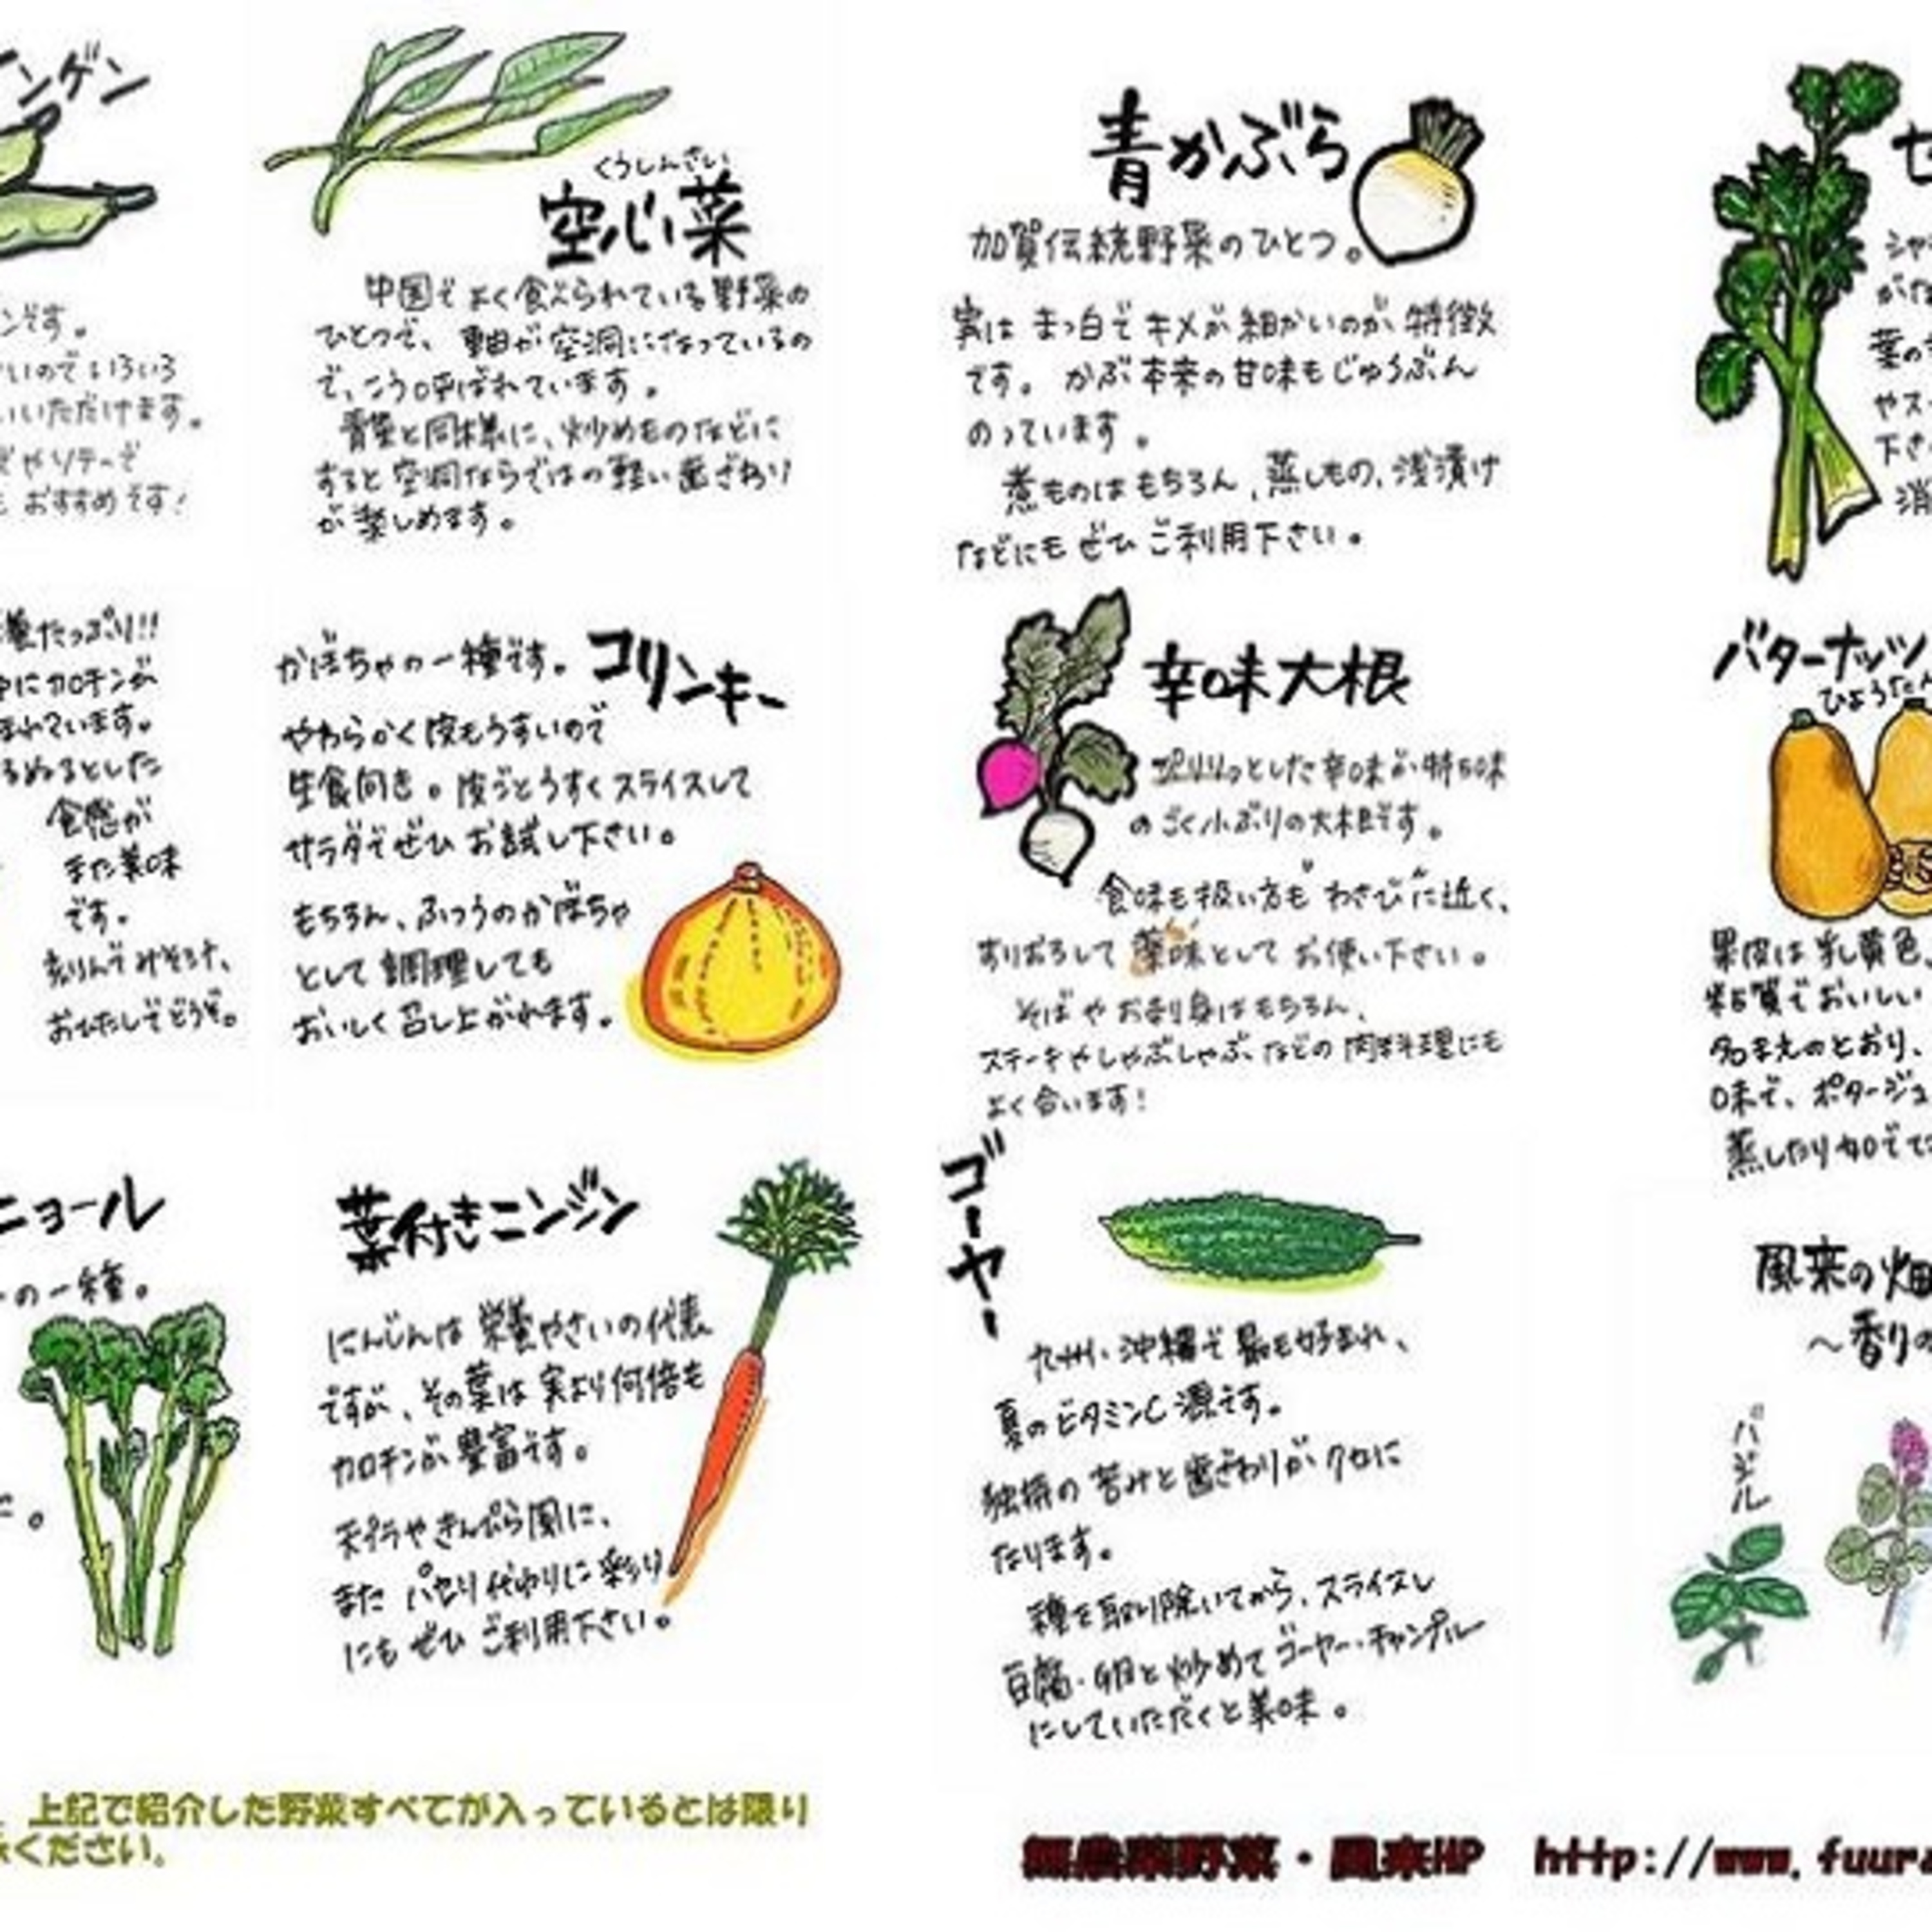 ンゲン
ンです。
いのでいろいろ
いいただけます。
やソテーで
おすすめです!
くうしんさい
空心菜
中国でよく食べられている野菜の
ひとつで、軸が空洞になっているの
で、こう呼ばれています。
青菜と同様に、炒めものなどに
すると空洞ならではの軽い歯ざわり
が楽しめます。
青かぶら
加賀伝統野菜のひとつ。
実はまっ白でキメが細かいのが特徴
です。かぶ本来の甘味もじゅうぶん
のっています。
煮ものはもちろん、蒸しもの、浅漬け
などにもぜひご利用下さい。
セ
シャ
がた
葉の
やス
下さ
消
養たっぷり!!
にカロチンが
まれています。
るぬるとした
食感が
また美味
です。
刻んでみそ汁、
おひたしでどうぞ。
コリンキー
かぼちゃの一種です。
やわらかく皮もうすいので
生食向き。皮ごとうすくスライスして
サラダでぜひお試し下さい。
もちろん、ふつうのかぼちゃ
として調理しても
おいしく召し上がれます。
辛味大根
ピリリっとした辛味が特味
のごく小ぶりの大根です。
食味も扱い方もわさびに近く、
すりおろして薬味としてお使い下さい。
そばやお刺身はもちろん、
ステーキやしゃぶしゃぶなどの肉料理にも
よく合います!
バターナッツ
ひょうたん
果皮は乳黄色、
粘質でおいしい
名まえのとおり、
味で、ポタージュ
蒸したり
ニョール
の一種。
た。
葉付きニンジン
にんじんは栄養やさいの代表
ですが、その葉は実より何倍も
カロチンが豊富です。
天プラやきんぴら風に、
またパセリ代わりに彩り
にもぜひご利用下さい。
ゴーヤー
九州・沖縄で最も好まれ、
夏のビタミンC源です。
独特の苦みと歯ざわりがクセに
なります。
種を取り除いてから、スライスし
豆腐・卵と炒めてゴーヤー・チャンプルー
にしていただくと美味。
風来の畑
～香りの
バジル
上記で紹介した野菜すべてが入っているとは限り
ください。
無農薬野菜・風来HP http://www.fuura